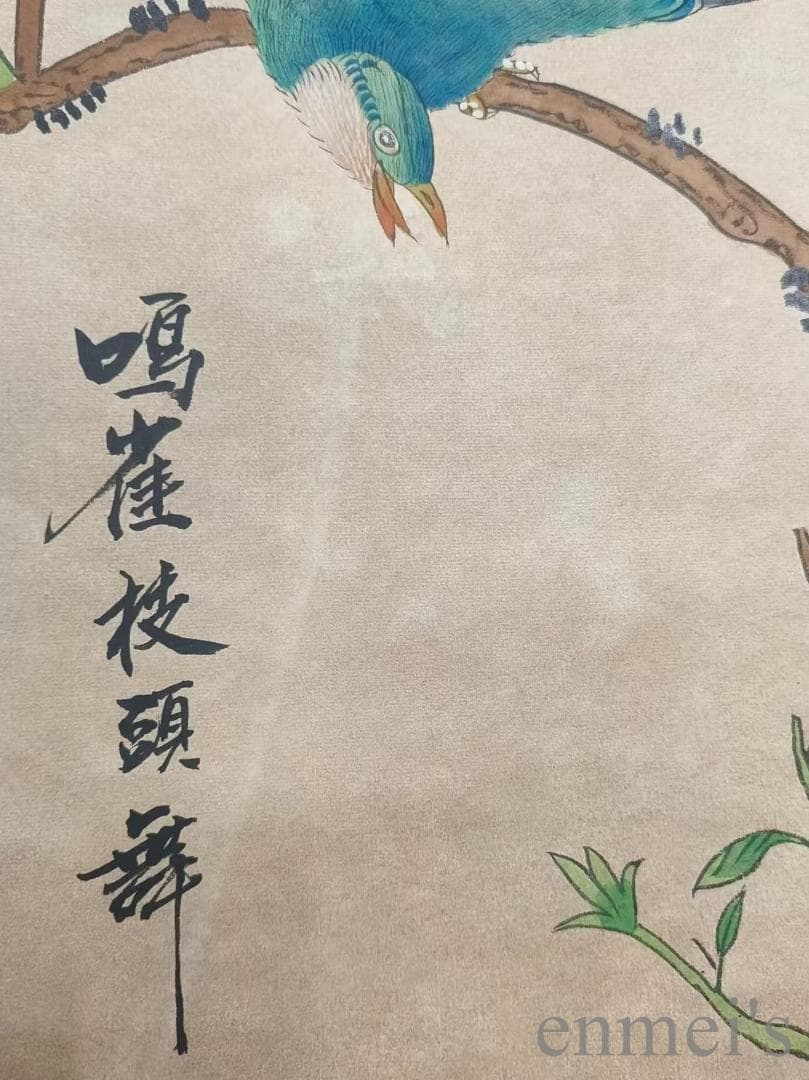 鳴雀枝頭舞
enmei's